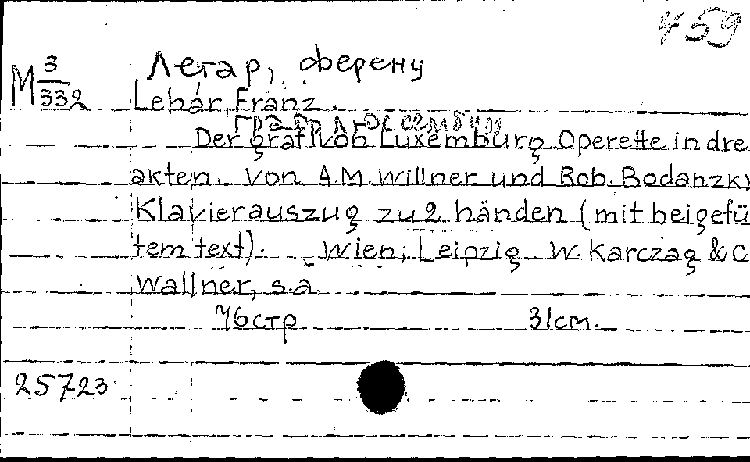 459
M 3/332
Легар, Ференц
Lehár, Franz.
Граф Люксембург
Der graf von Luxemburg Operette in dre
akten. Von A.M. Willner und Rob. Bodanzky
Klavierauszug zu 2 händen (mit beigefü
tem text). Wien, Leipzig W. Karczag & C
Wallner, s.a
76 стр 31 см.
25723